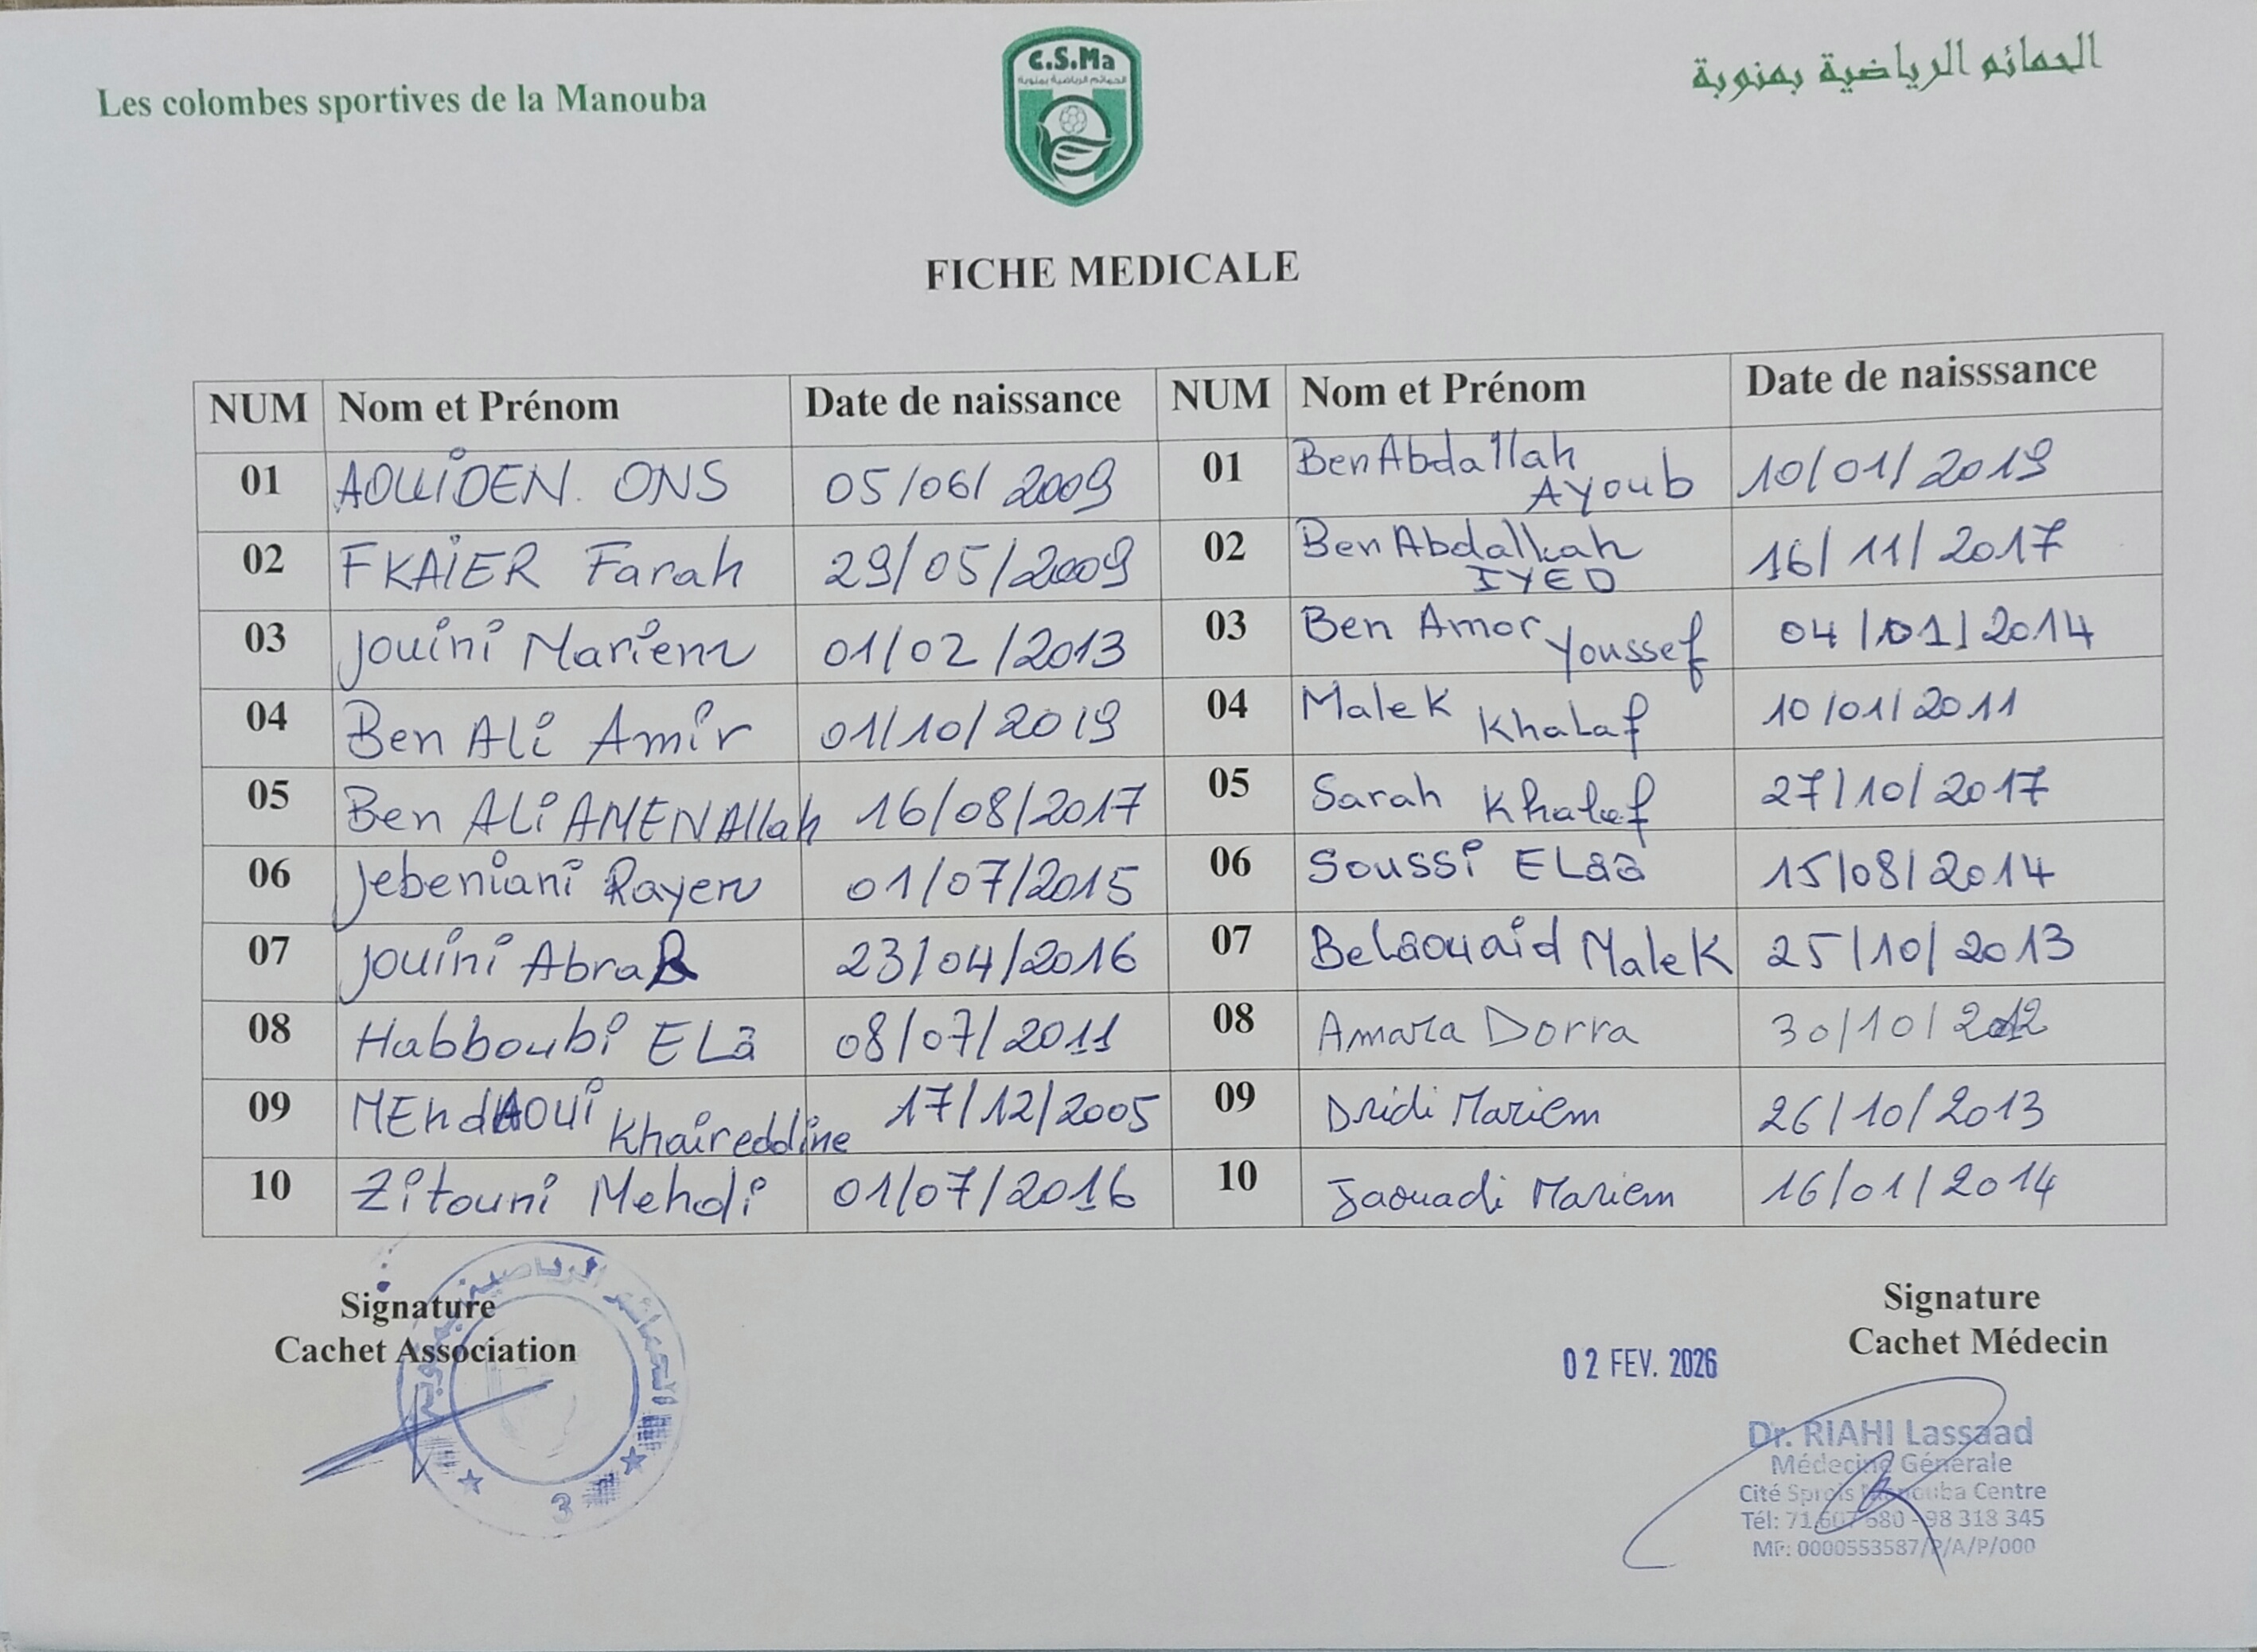 Les colombes sportives de la Manouba
C.S.Ma
الحمائم الرياضية بمنوبة
الحمائم الرياضية بمنوبة
FICHE MEDICALE
NUM Nom et Prénom Date de naissance NUM Nom et Prénom Date de naisssance
01 AOUIDEN. ONS 05/06/2009 01 Ben Abdallah Ayoub 10/01/2019
02 FKAIER Farah 29/05/2009 02 Ben Abdallah IYED 16/11/2017
03 Jouini Mariem 01/02/2013 03 Ben Amor Youssef 04/01/2014
04 Ben Ali Amir 01/10/2019 04 Malek Khalaf 10/01/2011
05 Ben ALi AMEN Allah 16/08/2017 05 Sarah Khalaf 27/10/2017
06 Jebeniani Rayen 01/07/2015 06 Soussi ELaa 15/08/2014
07 Jouini AbraR 23/04/2016 07 Belaouaid Malek 25/10/2013
08 Habboubi ELa 08/07/2011 08 Amara Dorra 30/10/2012
09 MEhdAoui Khaireddine 17/12/2005 09 Dridi Mariem 26/10/2013
10 Zitouni Mehdi 01/07/2016 10 Jaouadi Mariem 16/01/2014
Signature
Cachet Association
الحمائم الرياضية بمنوبة
3
Signature
Cachet Médecin
02 FEV. 2026
Dr. RIAHI Lassaad
Médecine Générale
Cité Sprols Manouba Centre
Tél: 71 607 680 - 98 318 345
MF: 0000553587/P/A/P/000